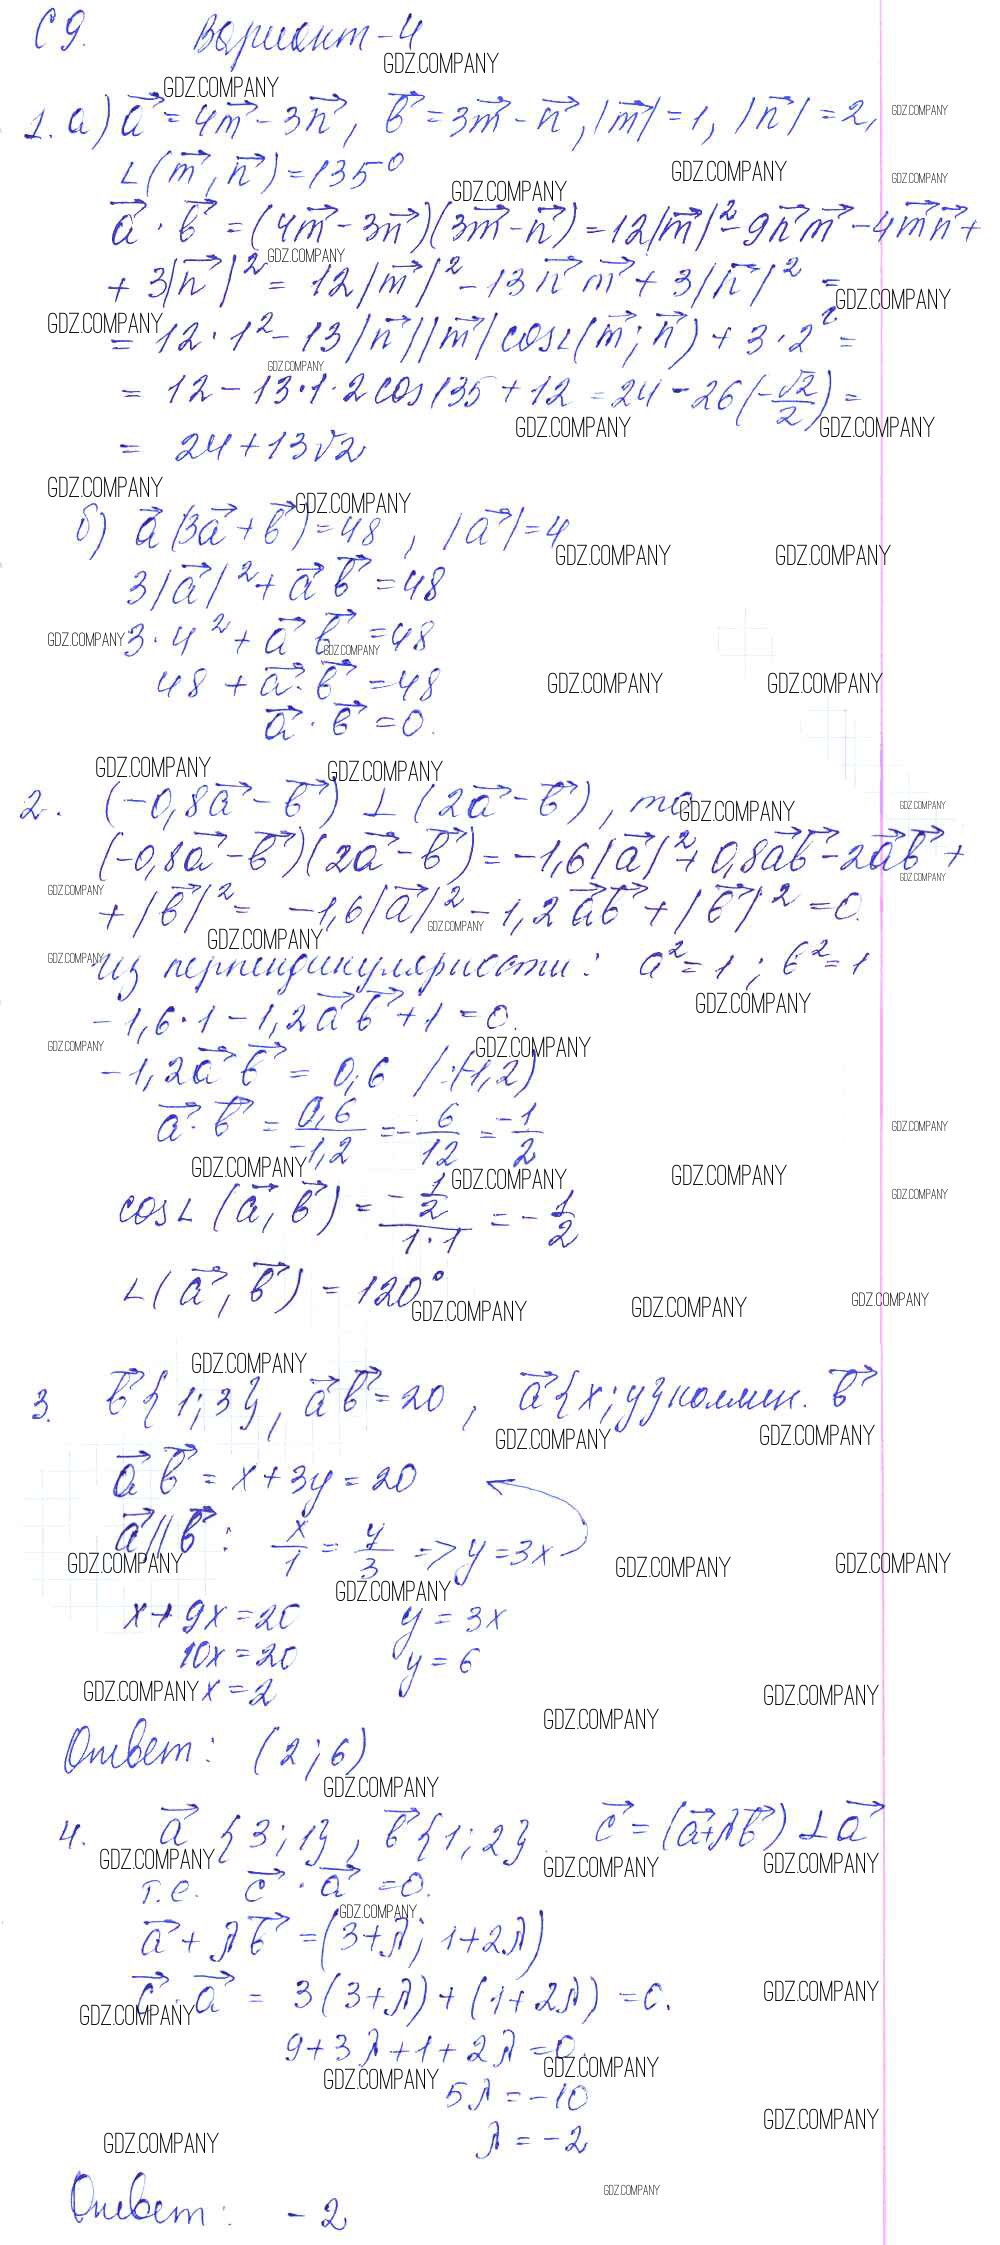 С 9. Вариант-4
1. а) a⃗ = 4m⃗ - 3n⃗, b⃗ = 3m⃗ - n⃗, |m⃗| = 1, |n⃗| = 2,
∠(m⃗, n⃗) = 135°
a⃗ · b⃗ = (4m⃗ - 3n⃗)(3m⃗ - n⃗) = 12|m⃗|² - 9n⃗m⃗ - 4m⃗n⃗ +
+ 3|n⃗|² = 12|m⃗|² - 13n⃗m⃗ + 3|n⃗|² =
= 12·1² - 13|n⃗||m⃗|cos∠(m⃗; n⃗) + 3·2² =
= 12 - 13·1·2cos135 + 12 = 24 - 26(-√2/2) =
= 24 + 13√2
б) a⃗(3a⃗ + b⃗) = 48, |a⃗| = 4
3|a⃗|² + a⃗ b⃗ = 48
3·4² + a⃗ b⃗ = 48
48 + a⃗·b⃗ = 48
a⃗·b⃗ = 0.
2. (-0,8a⃗ - b⃗) ⊥ (2a⃗ - b⃗), то
(-0,8a⃗ - b⃗)(2a⃗ - b⃗) = -1,6|a⃗|² + 0,8a⃗b⃗ - 2a⃗b⃗ +
+ |b⃗|² = -1,6|a⃗|² - 1,2a⃗b⃗ + |b⃗|² = 0.
Из перпендикулярности: a² = 1; b² = 1
-1,6·1 - 1,2a⃗b⃗ + 1 = 0.
-1,2a⃗b⃗ = 0,6 /:(-1,2)
a⃗·b⃗ = 0,6/-1,2 = -6/12 = -1/2
cos∠(a⃗, b⃗) = (-1/2)/(1·1) = -1/2
∠(a⃗, b⃗) = 120°
3. b⃗{1; 3}, a⃗b⃗ = 20, a⃗{x; y} коллин. b⃗
a⃗ b⃗ = x + 3y = 20
a⃗ || b⃗: x/1 = y/3 => y = 3x
x + 9x = 20 y = 3x
10x = 20 y = 6
x = 2
Ответ: (2; 6)
4. a⃗{3; 1}, b⃗{1; 2} c⃗ = (a⃗+λb⃗) ⊥ a⃗
т.е. c⃗·a⃗ = 0.
a⃗ + λb⃗ = (3+λ; 1+2λ)
c⃗·a⃗ = 3(3+λ) + (1+2λ) = 0.
9 + 3λ + 1 + 2λ = 0.
5λ = -10
λ = -2
Ответ: -2
GDZ.COMPANY